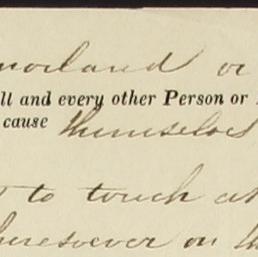 moreland or
ll and every other Person or
cause themselves
to touch at
heresoever on th